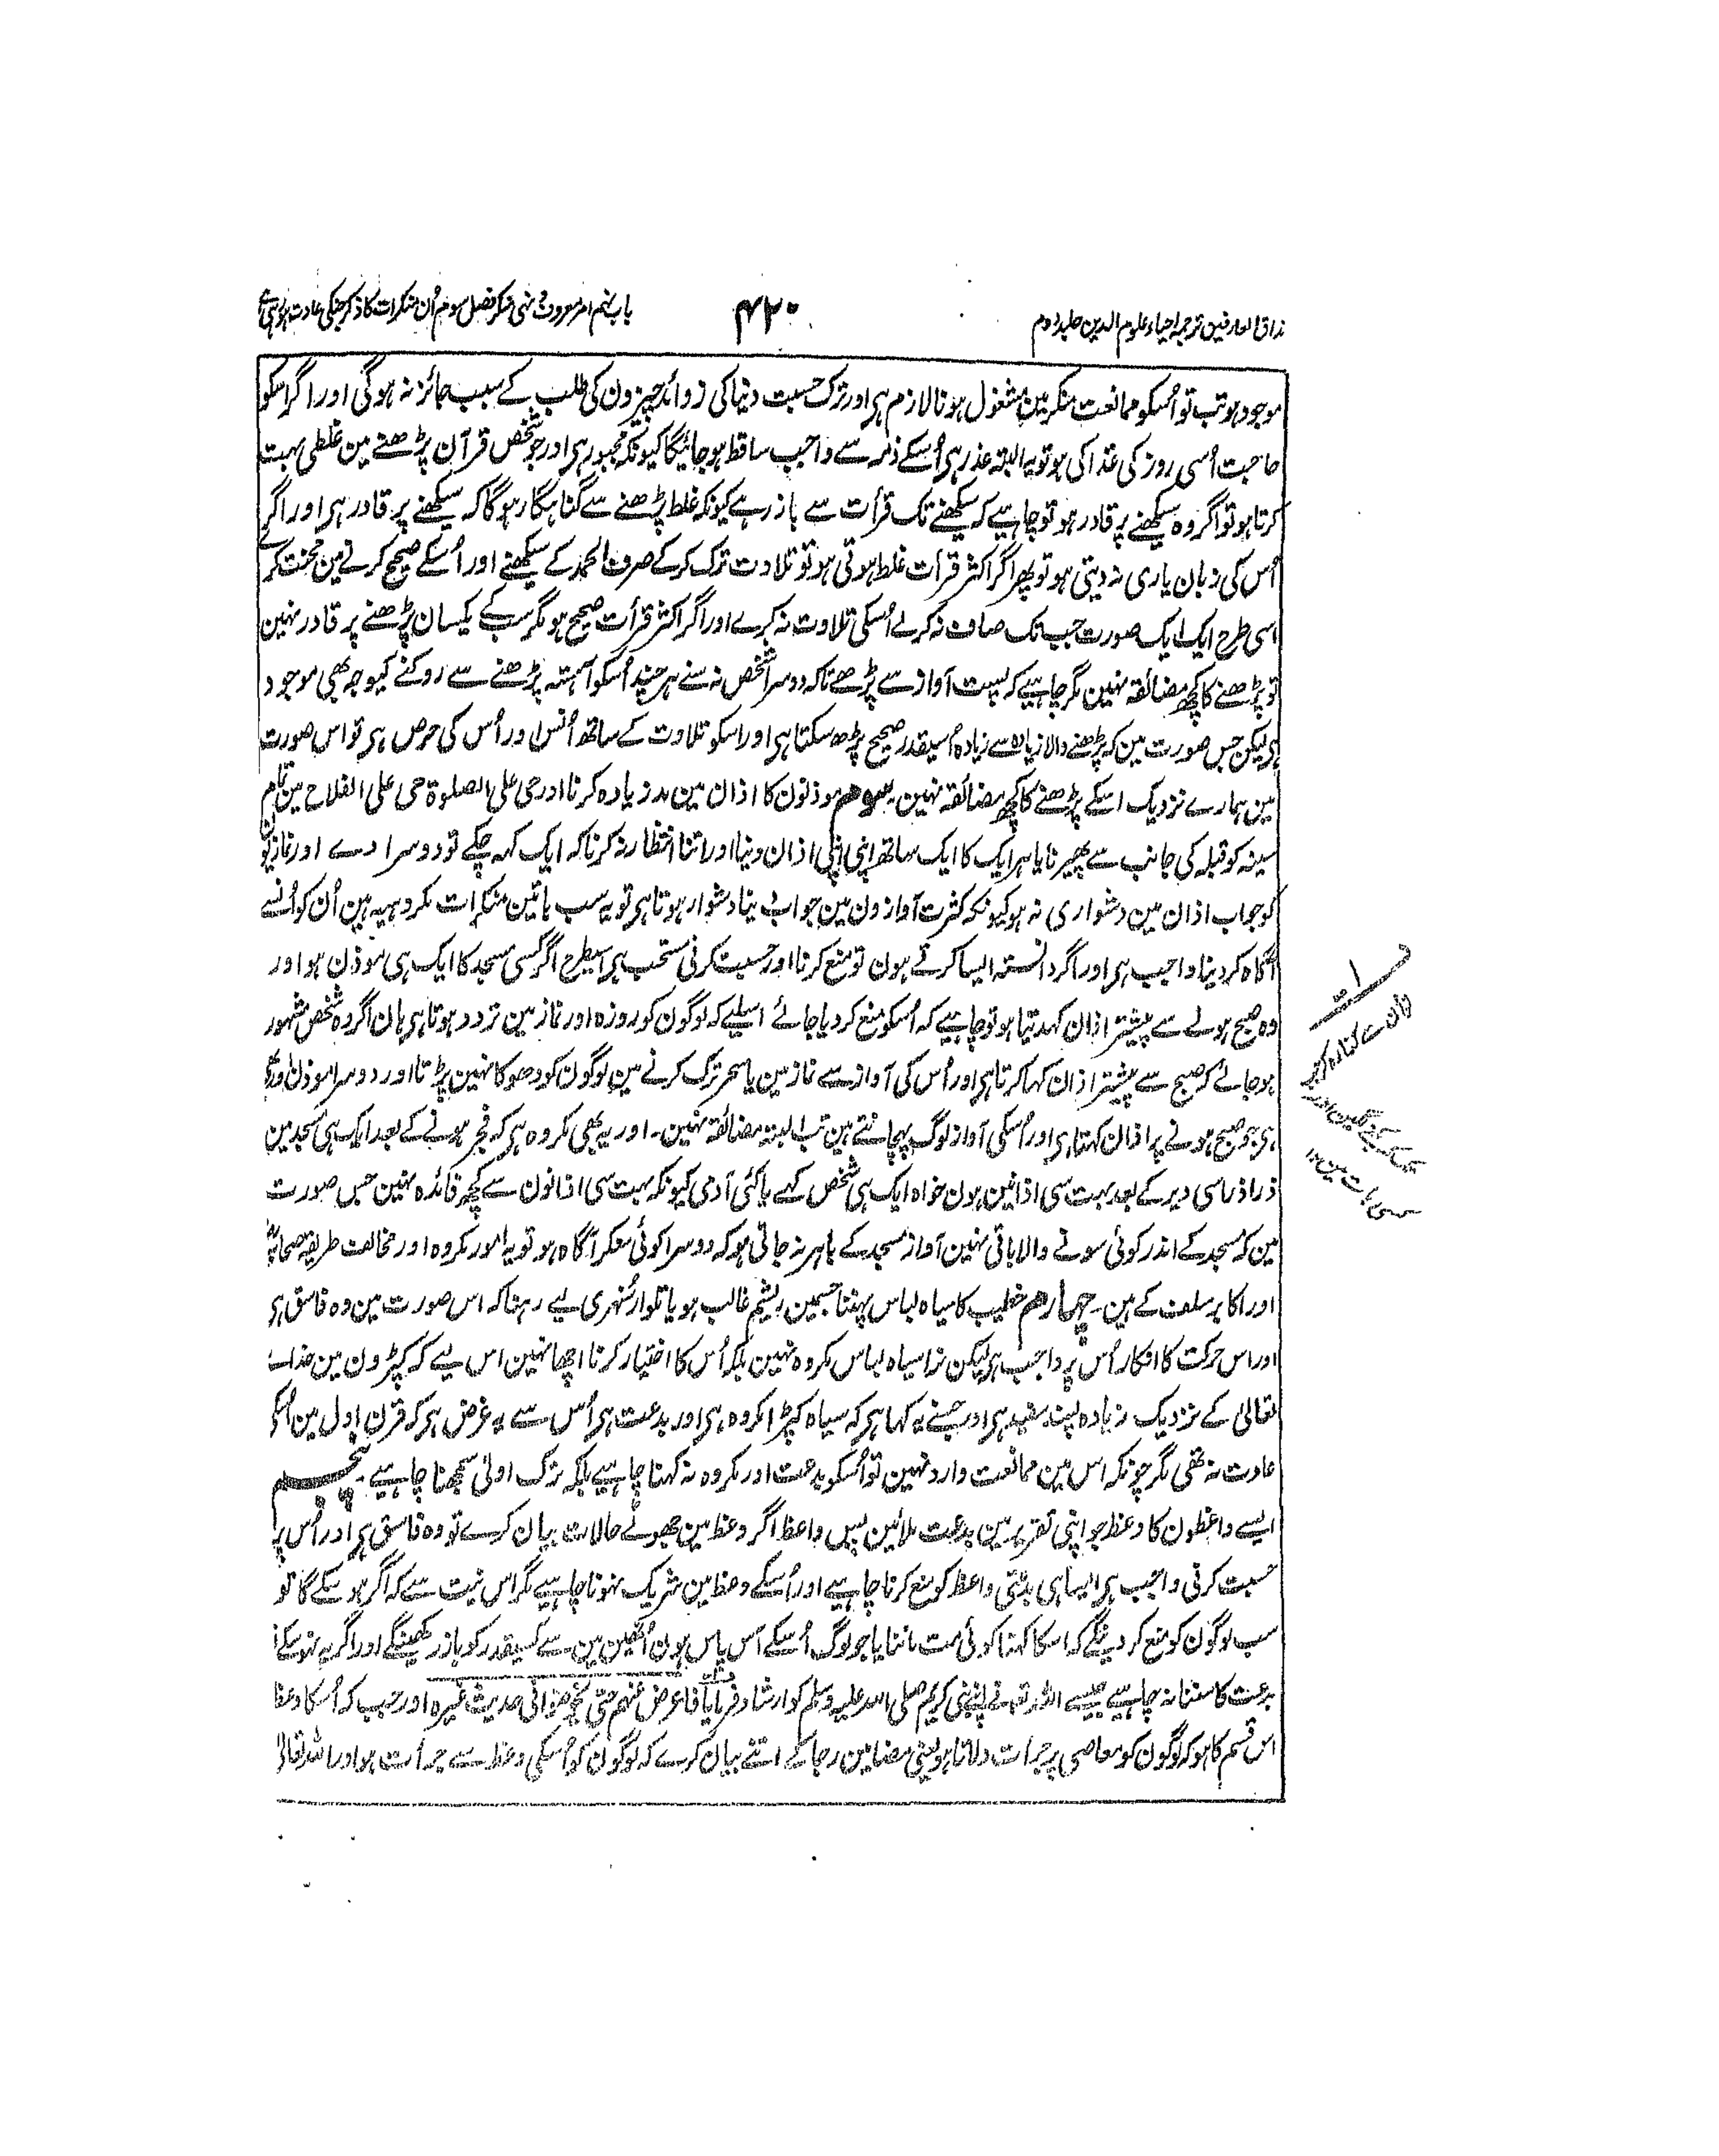 مذاق العارفین ترجمہ احیاء علوم الدین جلد دوم
۴۲۰
باب نہم امر معروف و نہی منکر فصل سوم اُن منکرات کا ذکر جنکی عادت ہو رہی ہے
موجود ہو تب تو اُسکو ممانعت منکر مین مشغول ہونا لازم ہر اور ترک حسبت دنیا کی زوائد چیزون کی طلب کے سبب جائز نہ ہوگی اور اگر اسکو
حاجت اُسی روز کی غذا کی ہو تو یہ البتہ عذر ہر اُسکے ذمہ سے واجب ساقط ہو جائیگا کیونکہ مجبور ہر اور جو شخص قرآن پڑھنے مین غلطی بہت
کرتا ہو تو اگر وہ سیکھنے پر قادر ہو تو چاہیے کہ سیکھنے تک قرأت سے باز رہے کیونکہ غلط پڑھنے سے گناہگار ہوگا کہ سیکھنے پر قادر ہر اور اگر
اُس کی زبان یاری نہ دیتی ہو تو پھر اگر اکثر قرأت غلط ہوتی ہو تو تلاوت ترک کرکے صرف الحمد کے سیکھنے اور اُسکے صحیح کرنے مین محنت کرے
اسی طرح ایک ایک صورت جب تک صاف نہ کرلے اُسکی تلاوت نہ کرے اور اگر اکثر قرأت صحیح ہو مگر سب کے یکسان پڑھنے پر قادر نہین
تو پڑھنے کا کچھ مضائقہ نہین مگر چاہیے کہ پست آواز سے پڑھے تاکہ دوسرا شخص نہ سنے ہر چند اُسکو آہستہ پڑھنے سے روکنے کیوجہ بھی موجود
ہر لیکن جس صورت مین کہ پڑھنے والا زیادہ سے زیادہ اُسیقدر صحیح پڑھ سکتا ہر اور اسکو تلاوت کے ساتھ اُنس اور اُس کی حرص ہر تو اس صورت
مین ہمارے نزدیک اسکے پڑھنے کا کچھ مضائقہ نہین۔ سوم موذنون کا اذان مین مد زیادہ کرنا اور حی علی الصلوۃ حی علی الفلاح مین تمام
سینہ کو قبلہ کی جانب سے پھیرنا یا ہر ایک کا ایک ساتھ اپنی اپنی اذان دینا اور اتنا انتظار نہ کرنا کہ ایک کہہ چکے تو دوسرا دے اور نمازیون
کو جواب اذان مین دشواری نہ ہو کیونکہ کثرت آوازون مین جواب دینا دشوار ہوتا ہر تو یہ سب باتین منکرات مکروہہ ہین اُن کو اُنسے
آگاہ کردینا واجب ہر اور اگر دانستہ ایسا کرتے ہون تو منع کرنا اور حسبت کرنی مستحب ہر اسیطرح اگر کسی مسجد کا ایک ہی موذن ہو اور
وہ صبح ہونے سے پیشتر اذان کہدیتا ہو تو چاہیے کہ اُسکو منع کردیا جائے اسلیے کہ لوگون کو روزہ اور نماز مین تردد ہوتا ہر ہان اگر وہ شخص مشہور
ہو جائے کہ صبح سے پیشتر اذان کہا کرتا ہر اور اُس کی آواز سے نماز مین یا سحر ترک کرنے مین لوگون کو دھوکا نہین پڑتا اور دوسرا موذن اور بھی
ہر جو صبح ہونے پر اذان کہتا ہر اور اُسکی آواز لوگ پہچانتے ہین تب البتہ مضائقہ نہین۔ اور یہ بھی مکروہ ہر کہ فجر ہونے کے بعد ایک ہی مسجد مین
ذرا ذرا سی دیر کے بعد بہت سی اذانین ہون خواہ ایک ہی شخص کہے یا کئی آدمی کیونکہ بہت سی اذانون سے کچھ فائدہ نہین جس صورت
مین کہ مسجد کے اندر کوئی سونے والا باقی نہین آواز مسجد کے باہر نہ جاتی ہو کہ دوسرا کوئی سنکر آگاہ ہو تو یہ امور مکروہ اور مخالف طریقہ صحابہ
اور اکابر سلف کے ہین۔ چہارم خطیب کا سیاہ لباس پہننا جسمین ریشم غالب ہو یا تلوار سُنہری لیے رہنا کہ اس صورت مین وہ فاسق ہر
اور اس حرکت کا انکار اُس پر واجب ہر لیکن نرا سیاہ لباس مکروہ نہین بلکہ اُس کا اختیار کرنا اچھا نہین اس لیے کہ کپڑون مین خداے
تعالیٰ کے نزدیک زیادہ پسند سفید ہر اور جسنے یہ کہا ہر کہ سیاہ کپڑا مکروہ ہر اور بدعت ہر اُس سے یہ غرض ہر کہ قرن اول مین اُسکی
عادت نہ تھی مگر چونکہ اس مین ممانعت وارد نہین تو اُسکو بدعت اور مکروہ نہ کہنا چاہیے بلکہ ترک اولیٰ سمجھنا چاہیے۔ پنجم
ایسے واعظون کا وعظ جو اپنی تقریر مین بدعت ملائین پس واعظ اگر وعظ مین جھوٹے حالات بیان کرے تو وہ فاسق ہر اور اُس پر
حسبت کرنی واجب ہر ایسا ہی بدعتی واعظ کو منع کرنا چاہیے اور اُسکے وعظ مین شریک نہونا چاہیے مگر اس نیت سے کہ اگر ہو سکے گا تو
سب لوگون کو منع کردینگے کہ اسکا کہنا کوئی مت ماننا یا جو لوگ اُسکے آس پاس ہون اُنھین مین سے کسیقدر کو باز رکھینگے اور اگر یہ نہو سکے تو
بدعت کا سننا نہ چاہیے جیسے اللہ تعہ نے اپنے نبی کریم صلی اللہ علیہ وسلم کو ارشاد فرمایا فاعرض عنہم حتی یخوضوا فی حدیث غیرہ اور جب کہ اُسکا وعظ
اس قسم کا ہو کہ لوگون کو معاصی پر جرأت دلاتا ہو یعنی مضامین رجا کے اتنے بیان کرے کہ لوگون کو اُسکی وعظ سے جرأت ہو اور اللہ تعالیٰ
ان سے کنارہ کر
کسی بات مین ۱۲